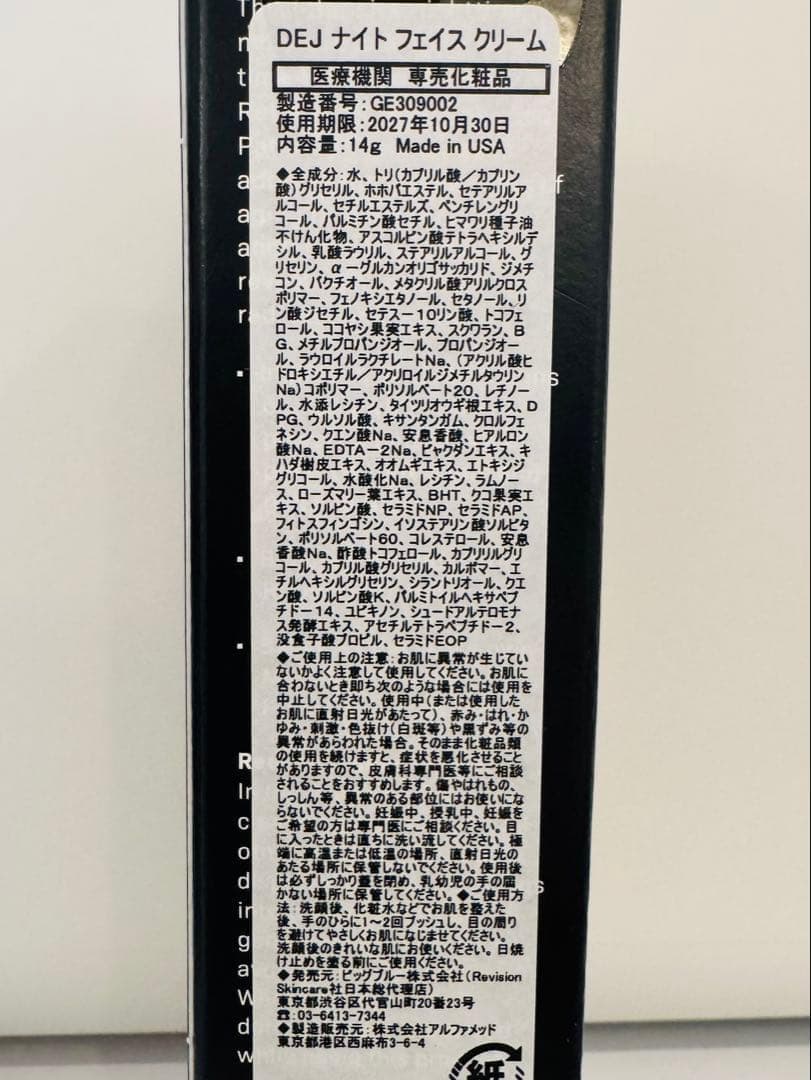 DEJ ナイト フェイス クリーム
医療機関 専売化粧品
製造番号:GE309002
使用期限:2027年10月30日
内容量:14g Made in USA
◆全成分:水、トリ(カプリル酸/カプリン
酸)グリセリル、ホホバエステル、セテアリルア
ルコール、セチルエステルズ、ペンチレングリ
コール、パルミチン酸セチル、ヒマワリ種子油
不けん化物、アスコルビン酸テトラヘキシルデ
シル、乳酸ラウリル、ステアリルアルコール、グ
リセリン、α-グルカンオリゴサッカリド、ジメチ
コン、バクチオール、メタクリル酸アリルクロス
ポリマー、フェノキシエタノール、セタノール、リ
ン酸ジセチル、セテス-10リン酸、トコフェ
ロール、ココヤシ果実エキス、スクワラン、B
G、メチルプロパンジオール、プロパンジオー
ル、ラウロイルラクチレートNa、(アクリル酸ヒ
ドロキシエチル/アクリロイルジメチルタウリン
Na)コポリマー、ポリソルベート20、レチノー
ル、水添レシチン、タイツリオウギ根エキス、D
PG、ウルソル酸、キサンタンガム、クロルフェ
ネシン、クエン酸Na、安息香酸、ヒアルロン
酸Na、EDTA-2Na、ビャクダンエキス、キ
ハダ樹皮エキス、オオムギエキス、エトキシジ
グリコール、水酸化Na、レシチン、ラムノー
ス、ローズマリー葉エキス、BHT、クコ果実エ
キス、ソルビン酸、セラミドNP、セラミドAP、
フィトスフィンゴシン、イソステアリン酸ソルビタ
ン、ポリソルベート60、コレステロール、安息
香酸Na、酢酸トコフェロール、カプリリルグリ
コール、カプリル酸グリセリル、カルボマー、エ
チルヘキシルグリセリン、シラントリオール、クエ
ン酸、ソルビン酸K、パルミトイルヘキサペプ
チド-14、ユビキノン、シュードアルテロモナ
ス発酵エキス、アセチルテトラペプチド-2、
没食子酸プロピル、セラミドEOP
◆ご使用上の注意:お肌に異常が生じてい
ないかよく注意して使用してください。お肌に
合わないとき即ち次のような場合には使用を
中止してください。使用中(または使用した
お肌に直射日光があたって)、赤み・はれ・か
ゆみ・刺激・色抜け(白斑等)や黒ずみ等の
異常があらわれた場合。そのまま化粧品類
の使用を続けますと、症状を悪化させること
がありますので、皮膚科専門医等にご相談
されることをおすすめします。傷やはれもの、
しっしん等、異常のある部位にはお使いにな
らないでください。妊娠中、授乳中、妊娠を
ご希望の方は専門医にご相談ください。目
に入ったときは直ちに洗い流してください。極
端に高温または低温の場所、直射日光の
あたる場所に保管しないでください。使用後
は必ずしっかり蓋を閉め、乳幼児の手の届
かない場所に保管してください。◆ご使用方
法:洗顔後、化粧水などでお肌を整えた
後、手のひらに1~2回プッシュし、目の周り
を避けてやさしくお肌になじませてください。
洗顔後のきれいな肌にお使いください。日焼
け止めを塗る前にご使用ください。
◆発売元:ビッグブルー株式会社(Revision
Skincare社日本総代理店)
東京都渋谷区代官山町20番23号
☎:03-6413-7344
◆製造販売元:株式会社アルファメッド
東京都港区西麻布3-6-4
紙